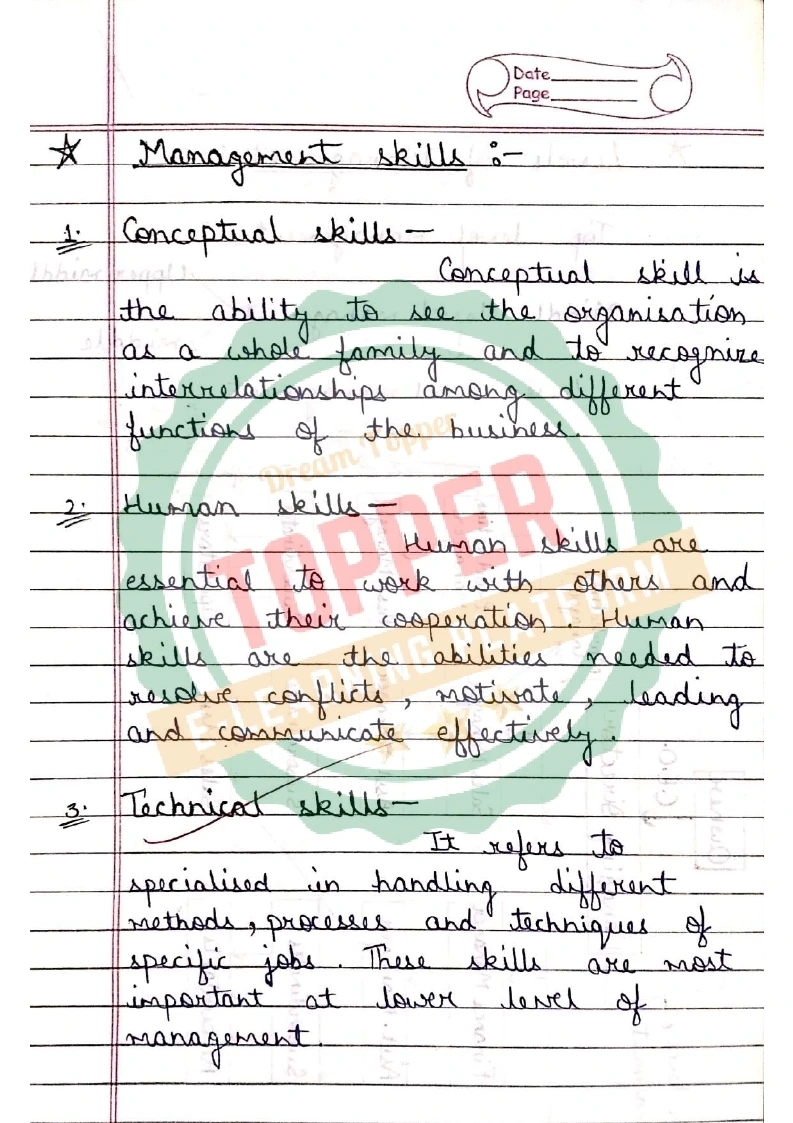 Date
Page
☆ Management skills :-
1. Conceptual skills —
Conceptual skill is
the ability to see the organisation
as a whole family and to recognize
interrelationships among different
functions of the business.
Dream Topper
2. Human skills —
TOPPER
Human skills are
essential to work with others and
achieve their cooperation. Human
skills are the abilities needed to
resolve conflicts, motivate, leading
and communicate effectively.
E-LEARNING PLATFORM
3. Technical skills —
It refers to
specialised in handling different
methods, processes and techniques of
specific jobs. These skills are most
important at lower level of
management.